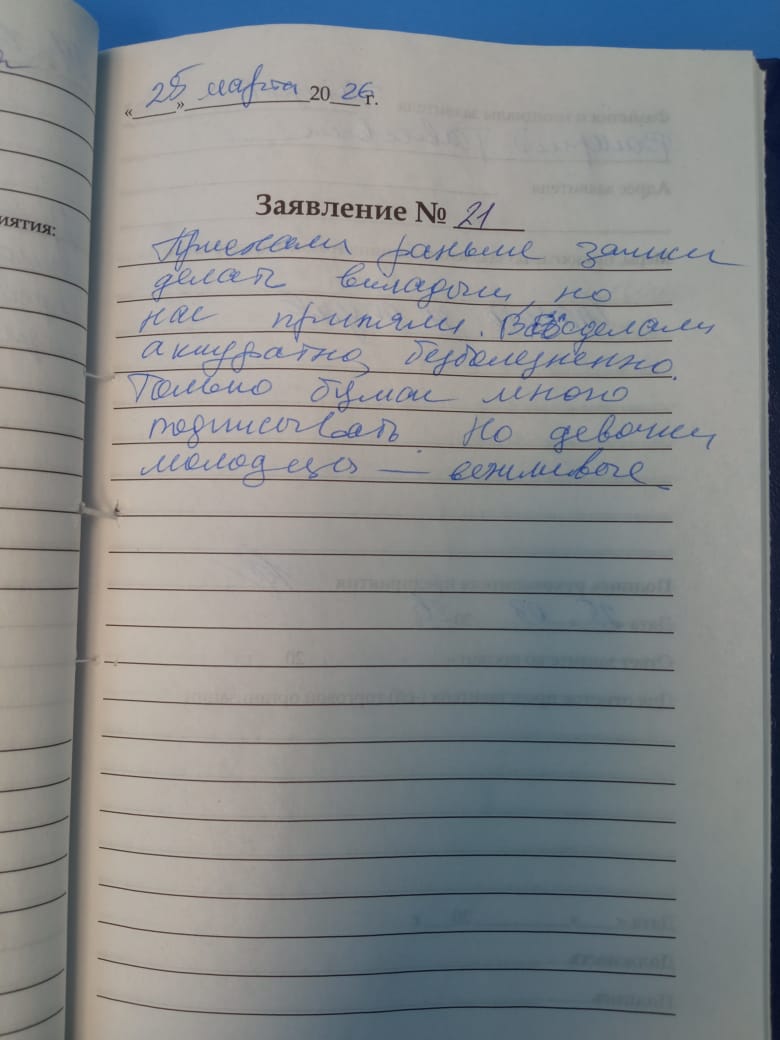 «25» марта 2026 г.
иятия:
Заявление № 21
Приехали раньше записи
делать вкладыш, но
нас приняли. Всё сделали
аккуратно, безболезненно.
Только бумаг много
подписывать. Но девочки
молодцы — вежливые